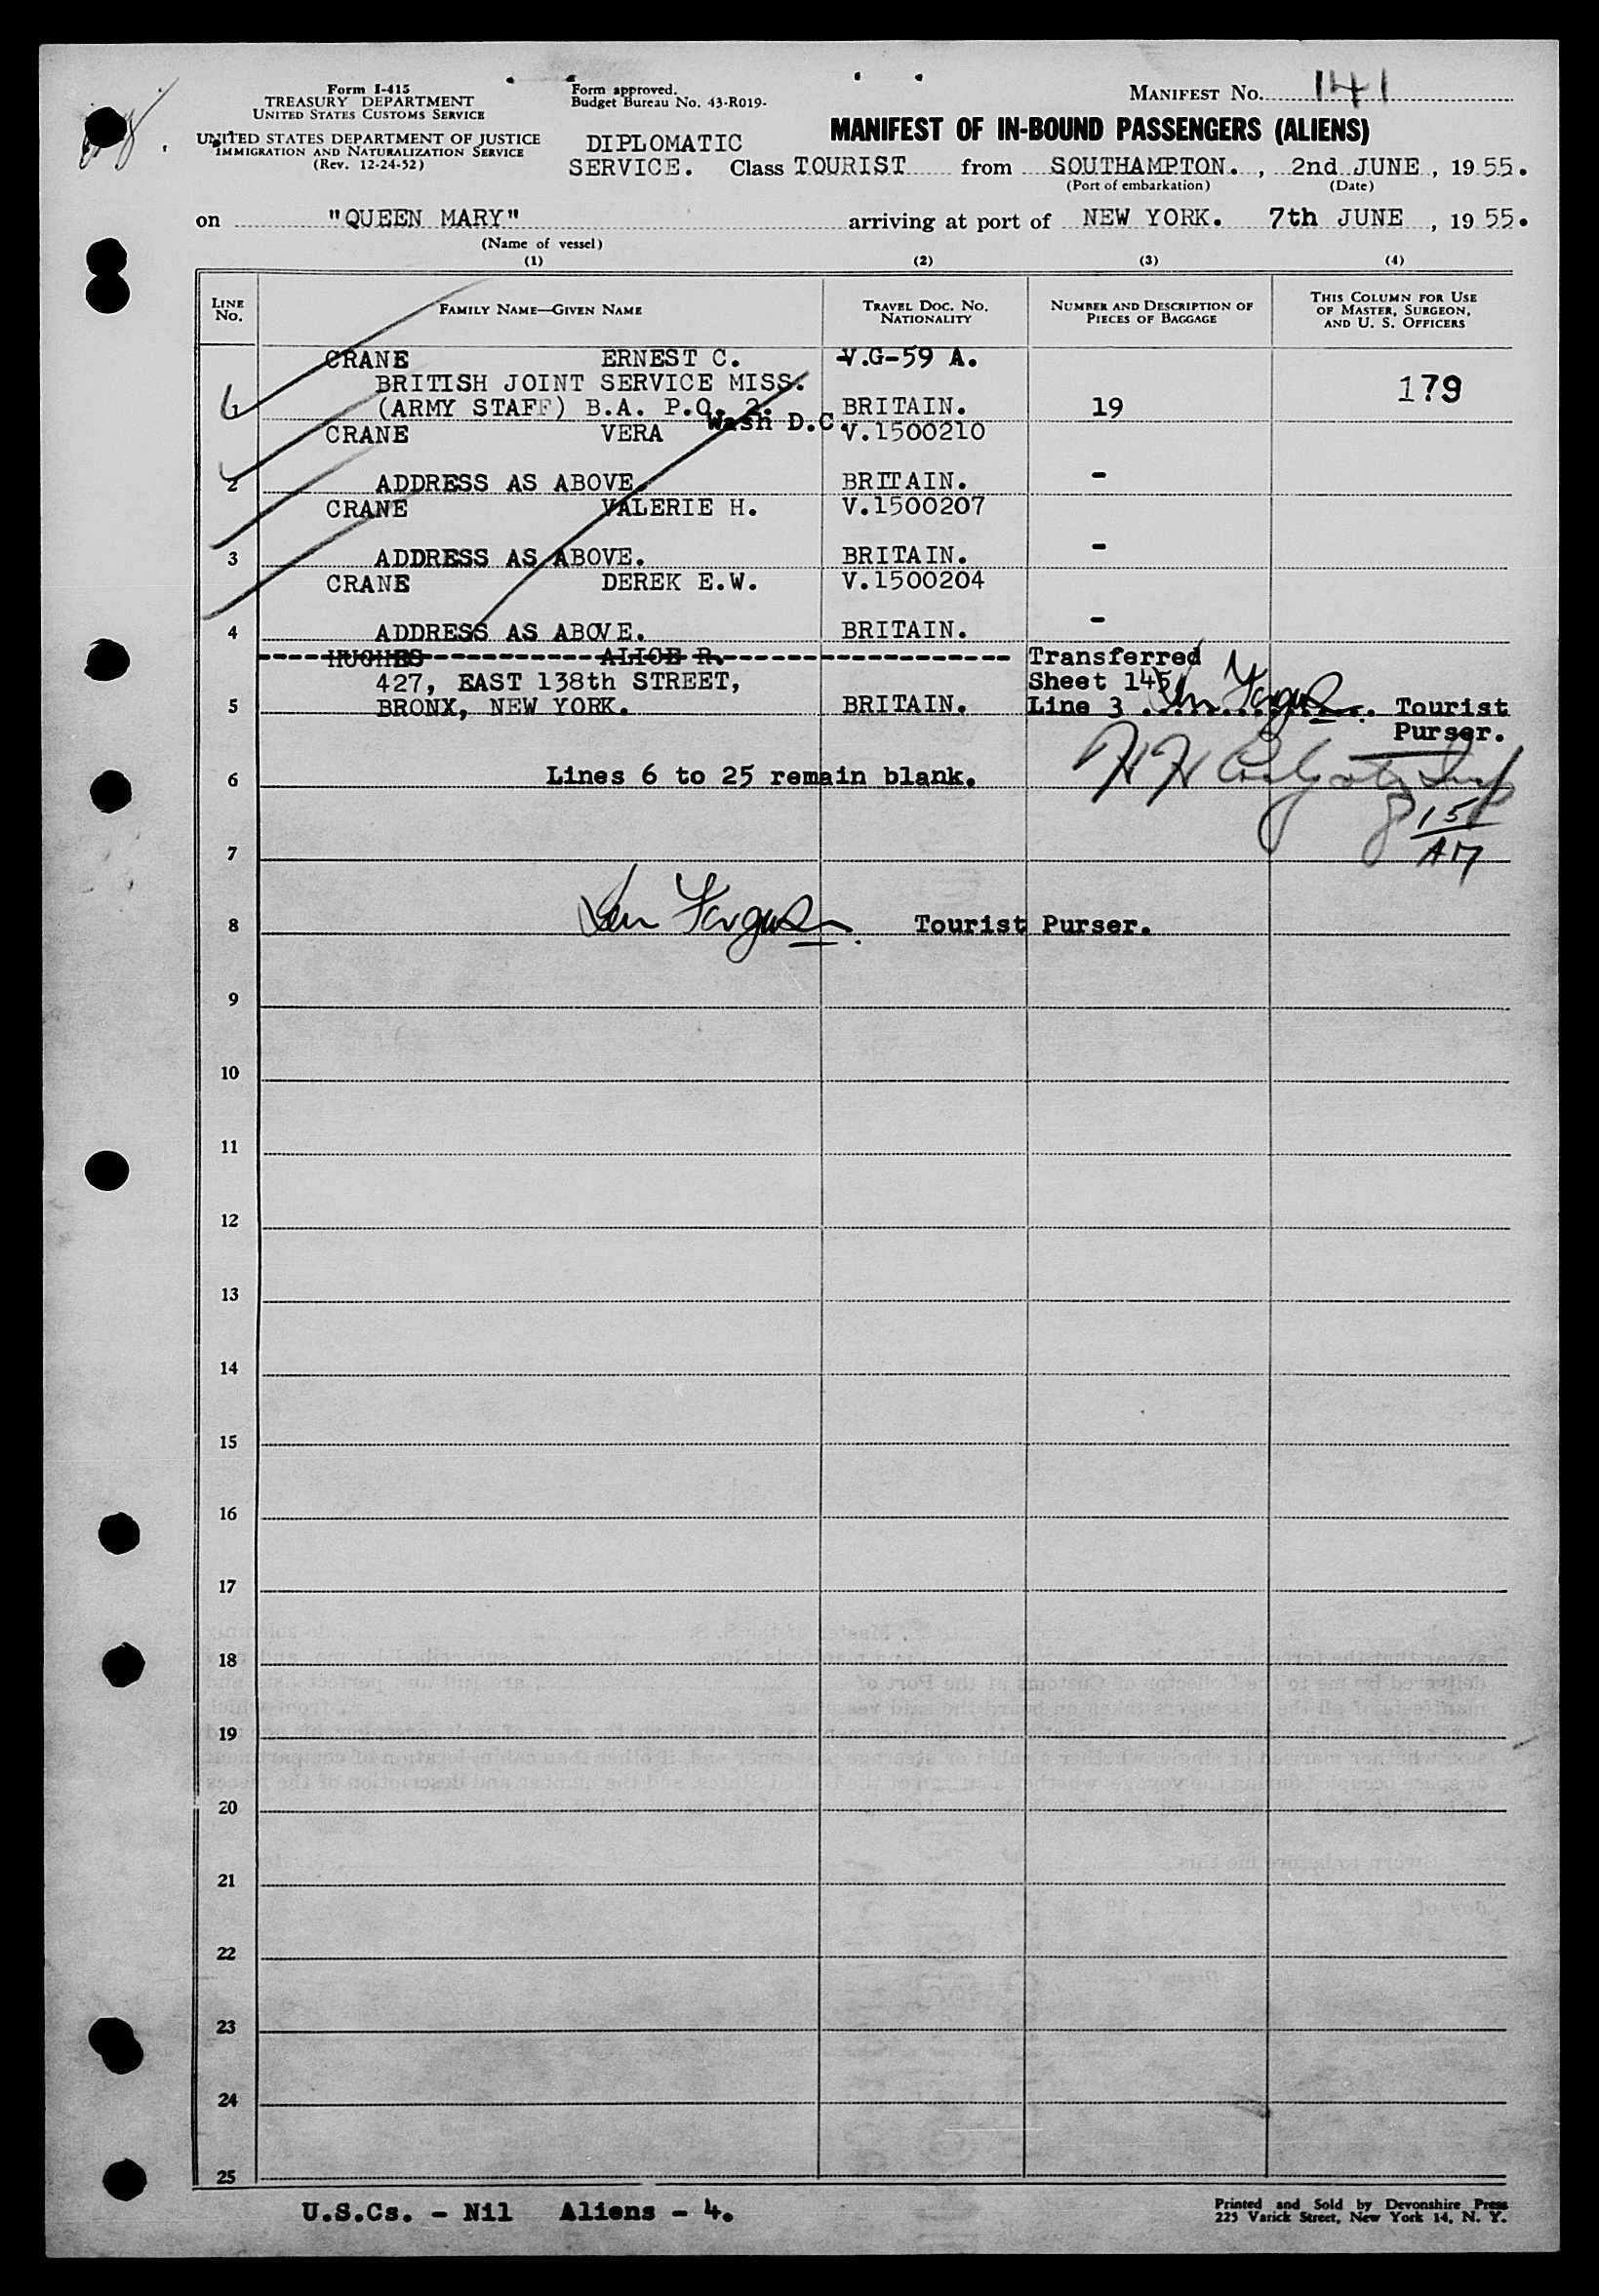 Form I-415
TREASURY DEPARTMENT
UNITED STATES CUSTOMS SERVICE
UNITED STATES DEPARTMENT OF JUSTICE
IMMIGRATION AND NATURALIZATION SERVICE
(Rev. 12-24-52)
Form approved.
Budget Bureau No. 43-R019-
MANIFEST NO. 141
MANIFEST OF IN-BOUND PASSENGERS (ALIENS)
DIPLOMATIC
SERVICE. Class TOURIST from SOUTHAMPTON., 2nd JUNE, 1955.
(Port of embarkation) (Date)
on "QUEEN MARY" arriving at port of NEW YORK. 7th JUNE, 1955.
(Name of vessel)
(1) (2) (3) (4)
LINE NO. FAMILY NAME—GIVEN NAME TRAVEL DOC. NO. NATIONALITY NUMBER AND DESCRIPTION OF PIECES OF BAGGAGE THIS COLUMN FOR USE OF MASTER, SURGEON, AND U. S. OFFICERS
CRANE ERNEST C. V.G-59 A.
BRITISH JOINT SERVICE MISS. 179
1 (ARMY STAFF) B.A. P.O. 2. BRITAIN. 19
Wash D.C.
CRANE VERA V.1500210
2 ADDRESS AS ABOVE. BRITAIN. -
CRANE VALERIE H. V.1500207
3 ADDRESS AS ABOVE. BRITAIN. -
CRANE DEREK E.W. V.1500204
4 ADDRESS AS ABOVE. BRITAIN. -
HUGHES ALICE R. Transferred
427, EAST 138th STREET, Sheet 145
5 BRONX, NEW YORK. BRITAIN. Line 3 Tourist
Purser.
6 Lines 6 to 25 remain blank.
151
AM
7
8 Ferguson Tourist Purser.
9
10
11
12
13
14
15
16
17
18
19
20
21
22
23
24
25
U.S.Cs. - Nil Aliens - 4.
Printed and Sold by Devonshire Press
225 Varick Street, New York 14, N. Y.